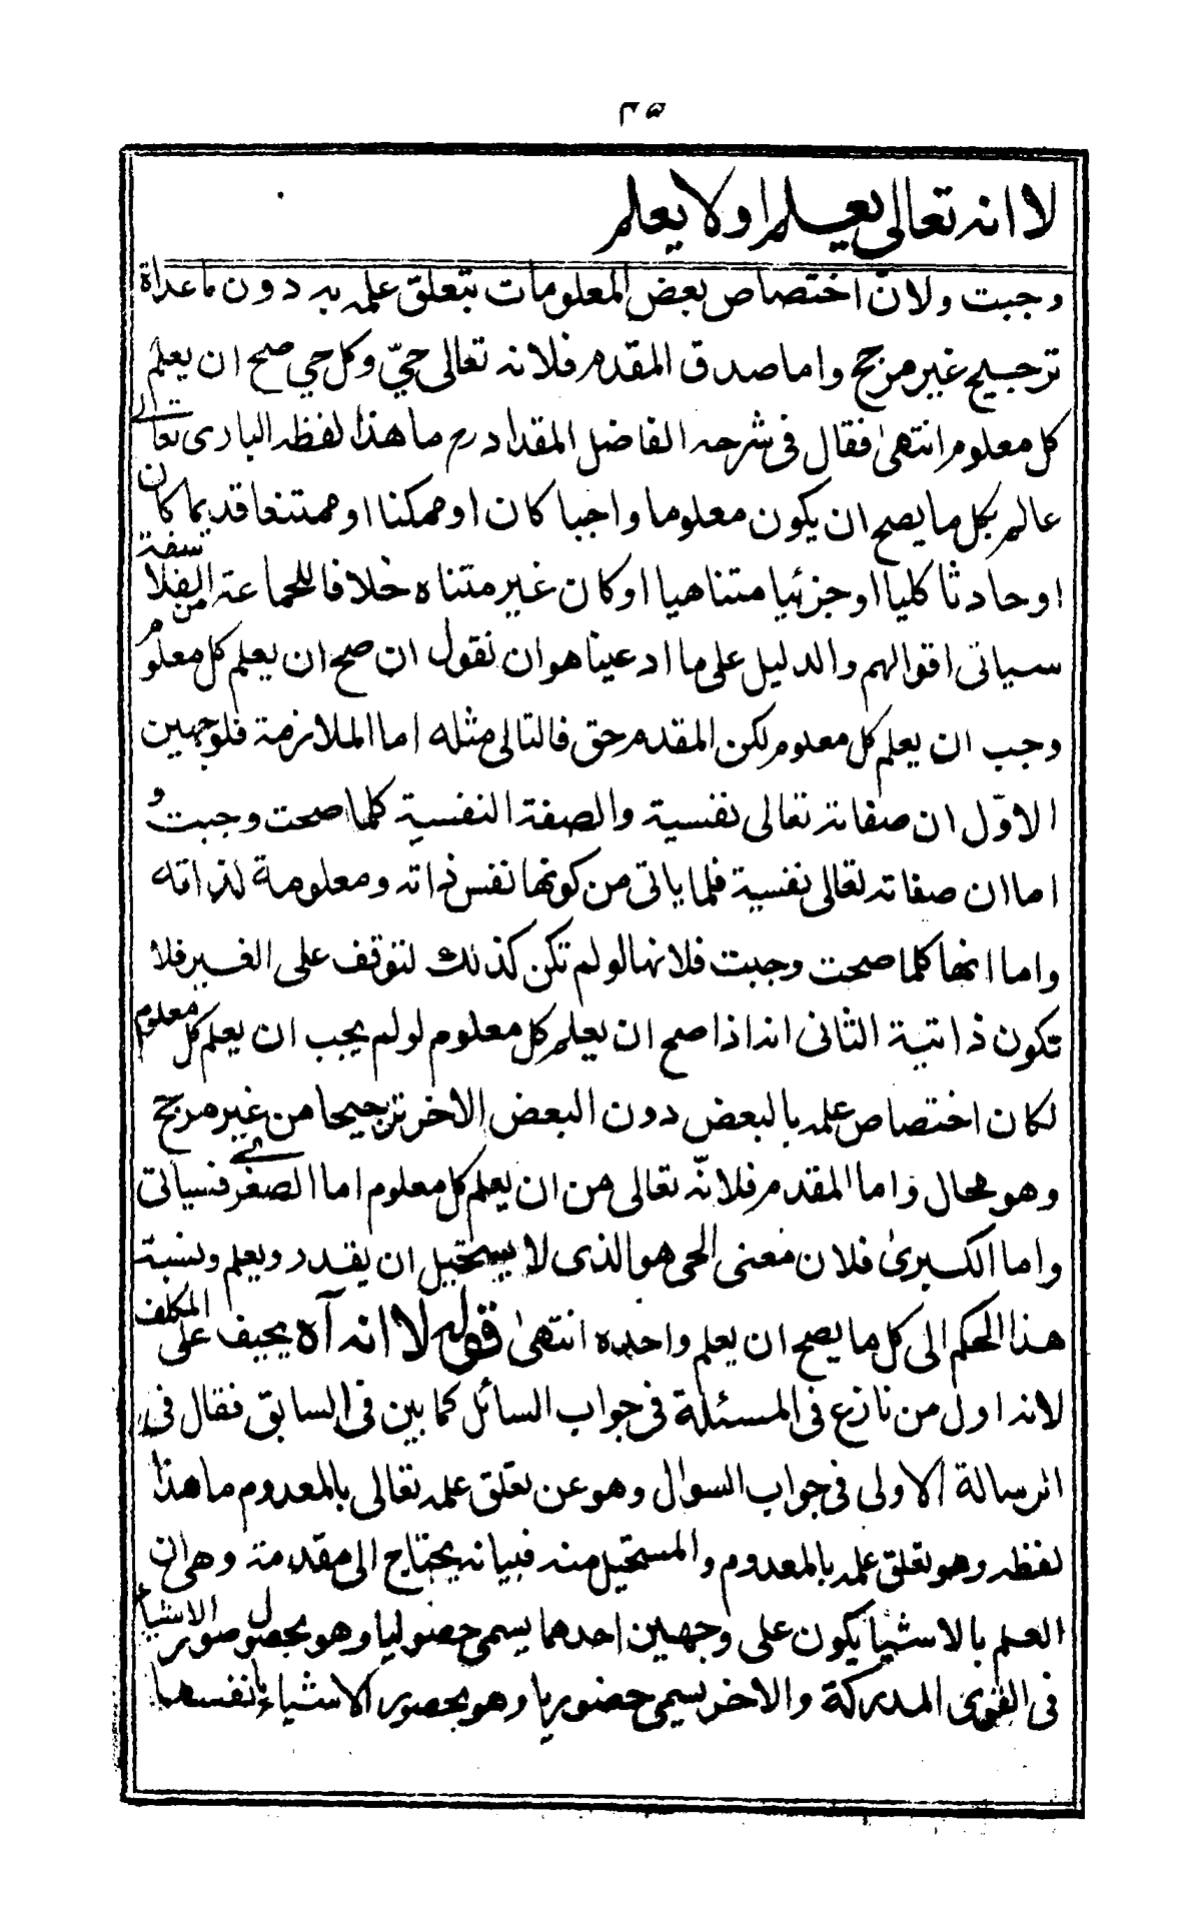 ٣٥
لا انه تعالى يعلم او لا يعلم
وجبت ولانّ اختصاص بعض المعلومات بتعلّق علمه به دون ما عداة
ترجيح غير مرجح واما صدق المقدم فلانه تعالى حيّ وكل حي صح ان يعلم
كل معلوم انتهى فقال فى شرحه الفاضل المقداد رم ما هذا لفظه البارى تعالى
عالم بكل ما يصح ان يكون معلوما واجبا كان او ممكنا او ممتنعا قديما كان
او حادثا كليا او جزئيا متناهيا او كان غير متناه خلافا للجماعة من الفلاسفة
سياتى اقوالهم والدليل على ما ادعينا هو ان نقول ان صح ان يعلم كل معلوم
وجب ان يعلم كل معلوم لكن المقدم حق فالتالى مثله اما الملازمة فلوجهين
الاوّل ان صفاته تعالى نفسية والصفة النفسية كلما صحت وجبت و
اما ان صفاته تعالى نفسية فلما ياتى من كونها نفس ذاته ومعلومة لذاته
واما انها كلما صحت وجبت فلانها لو لم تكن كذلك لتوقف على الغير فلا
تكون ذاتية الثانى انه اذا صح ان يعلم كل معلوم لو لم يجب ان يعلم كل معلوم
لكان اختصاص علمه بالبعض دون البعض الاخر ترجيحا من غير مرجح
وهو محال واما المقدم فلانّه تعالى من ان يعلم كل معلوم اما الصغرى فسياتى
واما الكبرى فلان معنى الحى هو الذى لا يستحيل ان يقدر ويعلم ونسبة
هذا الحكم الى كل ما يصح ان يعلم واحده انتهى قوله لا انه آه يجيف على المكلف
لانه اول من نازع فى المسئلة فى جواب السائل كما بين فى السابق فقال فى
الرسالة الاولى فى جواب السوال وهو عن تعلق علمه تعالى بالمعدوم ما هذا
لفظه وهو تعلق علمه بالمعدوم والمستحيل منه فبيانه يحتاج الى مقدمة وهى ان
العلم بالاشيا يكون على وجهين احدهما يسمى حصوليا وهو بحصول صور الاشيا
فى القوى المدركة والاخر يسمى حضوريا وهو بحضور الاشياء بانفسها